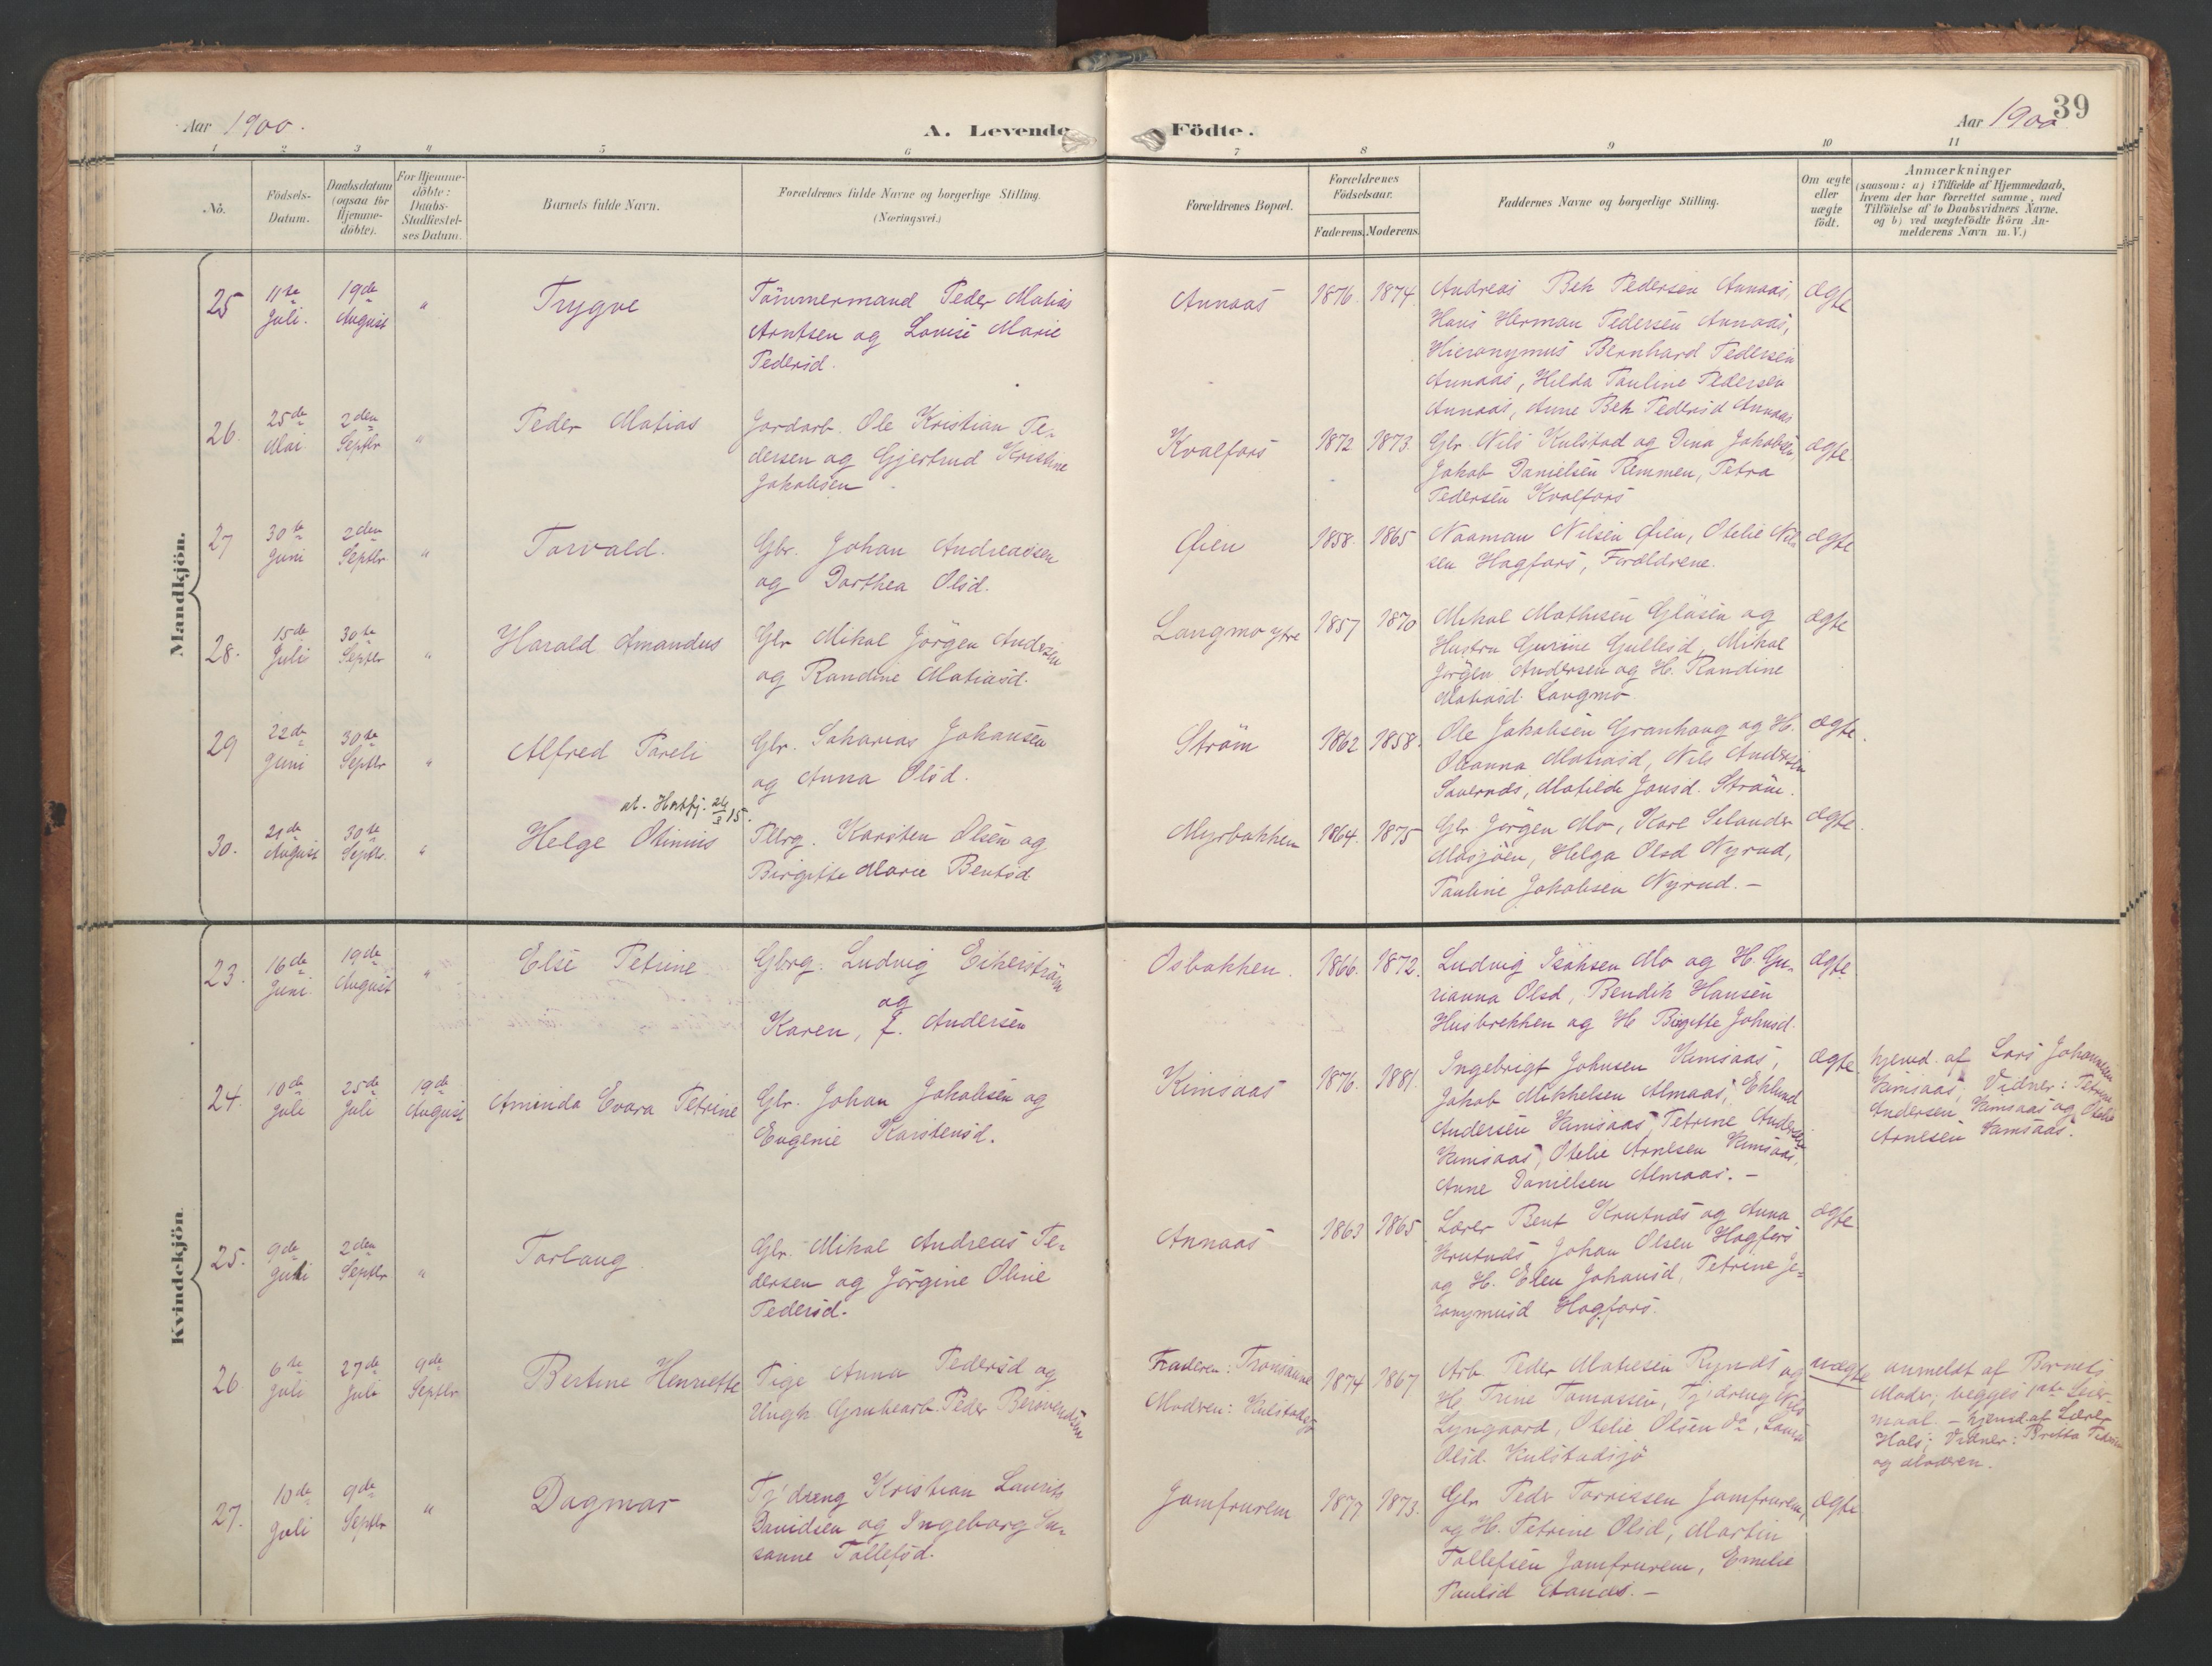 Aar 1900.
A. Levende Födte.
Aar 1900.
39
1 2 3 4 5 6 7 8 9 10 11
No.
Födsels-Datum.
Daabsdatum (ogsaa for Hjemme-döbte).
For Hjemme-döbte: Daabs-Stadfæstel-ses Datum.
Barnets fulde Navn.
Forældrenes fulde Navne og borgerlige Stilling. (Næringsvei.)
Forældrenes Bopæl.
Forældrenes Födselsaar.
Faderens. Moderens.
Faddernes Navne og borgerlige Stilling.
Om ægte eller uægte födt.
Anmærkninger
(saasom: a) i Tilfælde af Hjemmedaab,
hvem der har forrettet samme, med
Tilföielse af to Daabsvidners Navne.
og b) ved uægtefödte Börn An-
melderens Navn m. V.)
Mandkjön.
25 11te Juli. 19de August " Trygve
Tömmermand Peder Matias
Arntsen og Lovise Marie
Pedersd.
Annaas 1876. 1874.
Andreas Bek Pedersen Annaas,
Hans Herman Pedersen Annaas,
Hieronymus Bernhard Pedersen
Annaas, Hilda Pauline Pedersen
Annaas, Anne Bek Pedersd Annaas
ægte
26. 25de Mai 2den Septbr " Peder Matias
Jordarb. Ole Kristian Pe-
dersen og Gjertrud Kristine
Jakobsen.
Kvalfors 1872 1873.
Gbr. Nils Kulstad og Dina Jakobsen,
Jakob Danielsen Remmen, Petra
Pedersen Kvalfors
ægte.
27 30te Juni 2den Septbr " Torvald.
Gbr. Johan Andreassen
og Dorthea Olsd.
Øien 1858. 1865
Naaman Nilsen Øien, Otelie Nil-
sen Hagfors, Forældrene.
ægte
28. 15de Juli 30te Septbr " Harald Amandus
Gbr Mikal Jörgen Andersen
og Randine Matiasd.
Langmo ytre 1857 1870
Mikal Mathisen Glösen og
Hustru Gurine Gullesd, Mikal
Jörgen Andersen og H. Randine
Matiasd. Langmo
ægte
29 22de Juni 30te Septbr " Alfred Pareli
Gbr. Saharias Johansen
og Anna Olsd.
Ström 1862 1858.
Ole Jakobsen Granhaug og H.
Oleanna Matiasd, Nils Andersen
, Matilde Jonsd. Ström.
ægte.
at. Hatfj. 24/3 15.
30. 21de August 30te Septbr. " Helge Olinius
Karsten Olsen og
Birgitte Marie Bentsd
Myrbakken 1864. 1875
Gbr Jörgen Mo, Karl Selander
Mosjöen, Helga Olsd Nyrud,
Pauline Jakobsen Nyrud. -
ægte.
Kvindekjön
23. 16de Juni 19de August " Else Petrine
Gbrg. Ludvig Eikerström
og
Karen, f. Andersen
Osbakken. 1866. 1872.
Ludvig Isaksen Mo og H. Gu-
rianna Olsd, Bendik Hansen
Husbrekken og H Birgitte Johnsd.
ægte
24. 10de Juli 25de Juli 19de August Aminda Evara Petrine
Gbr. Johan Jakobsen og
Eugenie Karstensd.
Kimsaas 1876. 1881.
Ingebrigt Johnsen Kimsaas,
Jakob Mikkelsen Almaas, Eklund
Andersen Kimsaas, Petrine Andersen
Kimsaas, Otelie Arntsen Kimsaas,
Anne Danielsen Almaas. -
ægte.
hjemd. af Lars Johannesen
Kimsaas, Vidner: Petrine
Andersen Kimsaas og Otelie
Arntsen Kimsaas.
25. 9de Juli 2den Septbr " Torlaug
Gbr. Mikal Andreas Pe-
dersen og Jörgine Oline
Pedersd.
Annaas 1863 1865
Lærer Bent Krutnæs og Anna
Krutnæs, Johan Olsen Hagfors
og H. Elen Johansd, Petrine Je-
ronymusd Hagfors.
ægte
26 6te Juli 27de Juli 9de Septbr Bertine Henriette
Pige Anna Pedersd og
Ungk Grubearb. Peder
Faderen:
Modren: Kulstadsjö
1874 1867
Arb Peder Matiesen Rynæs og
H. Trine Tomassen, Tj'dreng Nils
Lyngaard, Otelie Olsen do,
Olsd. Kulstadsjö
uægte
anmeldt af Barnets
Moder; begges 1ste Leier-
maal. - hjemd. af Lærer
Hals; Vidner: Britta
og Moderen.
27. 10de Juli 9de Septbr " Dagmar
Tj'dreng Kristian Laurits
Davidsen og Ingeborg Su-
sanne Tollefsd.
Jomfrurem 1877 1873.
Gbr. Peder Torrissen Jomfrurem,
og H. Petrine Olsd, Martin
Tollefsen Jomfrurem, Emelie
Paulsd Aanæs. -
ægte